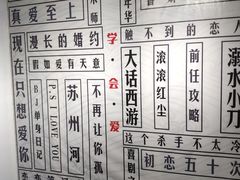 真爱至上
漫长的婚约
假如爱有天意
现在只想爱你
BJ单身日记
P.S I LOVE YOU
苏州河
不再让你孤
学·会·爱
触不到的恋人
大话西游
滚滚红尘
前任攻略
溺水小刀
这个杀手不太冷
初恋五十次
喜剧之
年华